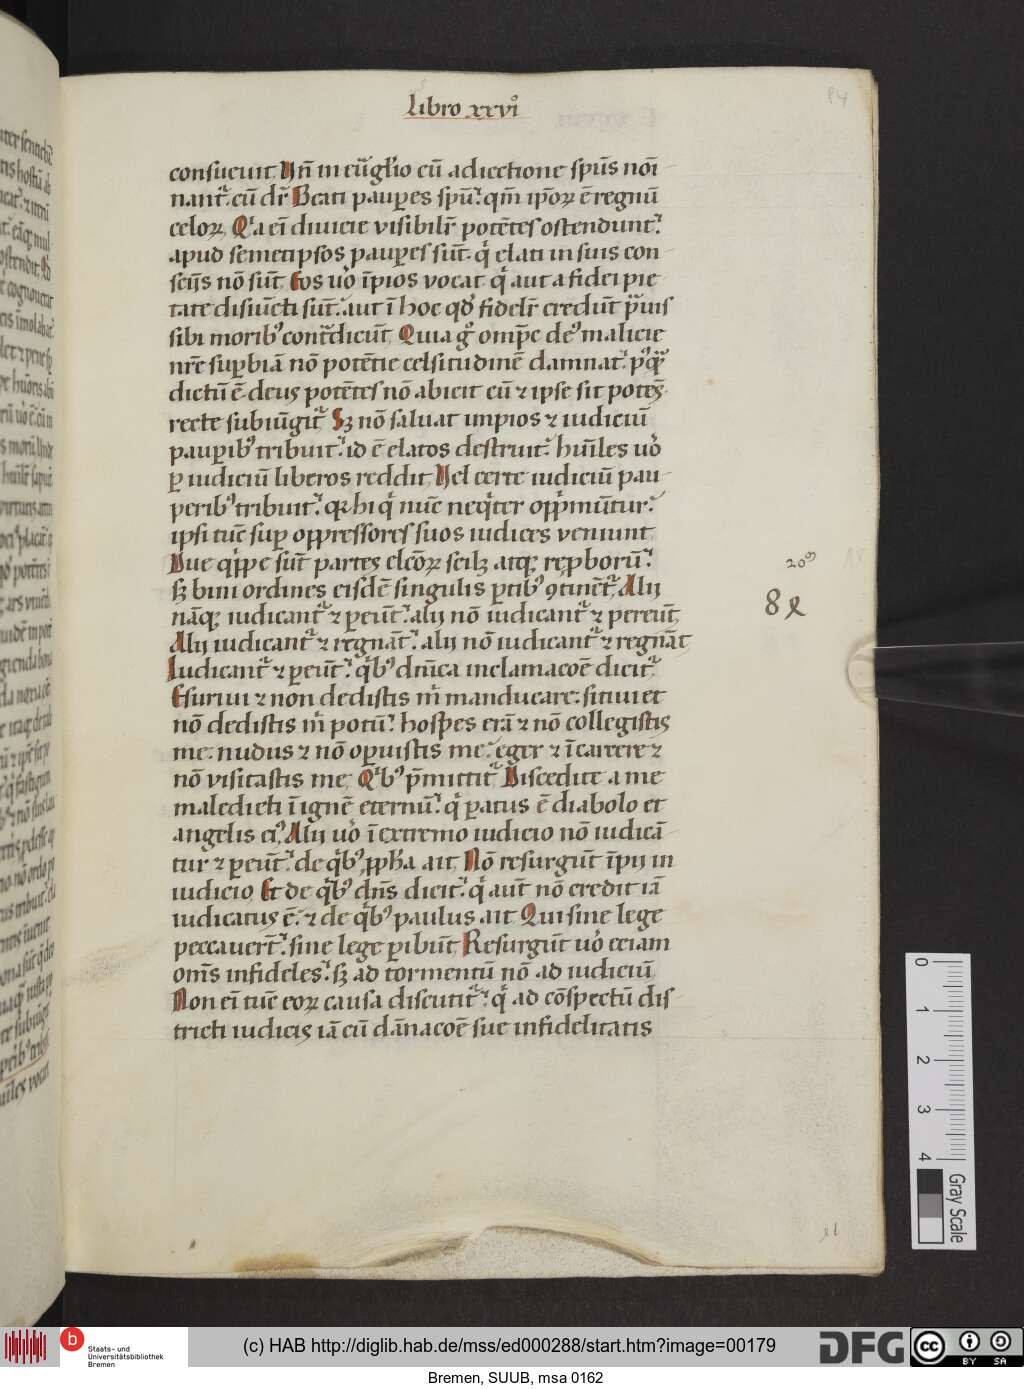 libro xxviͦ
84
consueuit. Vn̄ in euāgl̓io cū adiectione spūs noī
nant᷑. cū dr̄ Beati pauperes spū. qm̄ ip̄oꝝ ē regnū
celoꝝ. Qͥa eī diuicie visibilr̄ potētes ostendunt.
apud semetipsos pauperes sūt. qͥ elati in suis con
sciis nō sūt. Eos uͦ īpios vocat qͥ aut a fidei pie
tate disiūcti sūt. aut ī hoc qd̓ fidelr̄ credūt prauis
sibi moribꝰ contͣdicūt. Quia gͦ omp̄c deꝰ malicie
nr̄e suꝑbiā nō potētie celsitudinē damnat.
dictū ē. deus potētes nō abicit cū ⁊ ipse sit potēs.
recte subiūgit᷑ Sꝫ nō saluat impios ⁊ iudiciū
pauꝑibꝰ tribuit. id ē elatos destruit. hūiles uͦ
ꝑ iudiciū liberos reddit. Vel certe iudiciū pau
peribꝰ tribuit. qꝛ hi qͥ nūc neqͥter opp̄mūtur.
ipsi tūc suꝑ oppressores suos iudices veniunt.
Due qͥppe sūt partes elcōꝝ scilꝫ atqꝫ reꝓboꝝ.
sꝫ bini ordines eisdē singulis ꝑtibꝰ ꝯtinēt᷑. Alij
nāqꝫ iudicant᷑ ⁊ ꝑeūt. alij nō iudicant᷑ ⁊ pereūt.
Alij iudicant᷑ ⁊ regnāt. alij nō iudicant᷑ ⁊ regnāt
Iudicant᷑ ⁊ ꝑeūt. qͥbꝰ dn̄ica inclamacōe dicit᷑
Esuriui ⁊ non dedistis mͥ manducare. sitiui et
nō dedistis mͥ potū. hospes erā ⁊ nō collegistis
me. nudus ⁊ nō oꝑuistis me. eger ⁊ ī carcere ⁊
nō visitastis me. Qͥbꝰ p̄mittit᷑ Discedite a me
maledicti ī ignē eternū. qͥ ꝑatus ē diabolo et
angelis eiꝰ. Alij uͦ ī extremo iudicio nō iudicā
tur ⁊ ꝑeūt. de qͥbꝰ ꝓph̄a ait. Nō resurgūt īpij in
iudicio. Et de qͥbꝰ dn̄s dicit. qͥ aūt nō credit iā
iudicatus ē. ⁊ de qͥbꝰ paulus ait. Qui sine lege
peccauerūt. sine lege ꝑibūt. Resurgūt uͦ eciam
om̄s infideles. sꝫ ad tormentū nō ad iudiciū
Non eī tūc eoꝝ causa discutit᷑. qͥ ad cōspectū dis
tricti iudicis iā cū dānacōe sue infidelitatis
0
1
2
3
4
Gray Scale
b
Staats- und
Universitätsbibliothek
Bremen
(c) HAB http://diglib.hab.de/mss/ed000288/start.htm?image=00179
DFG
cc
BY SA
Bremen, SUUB, msa 0162